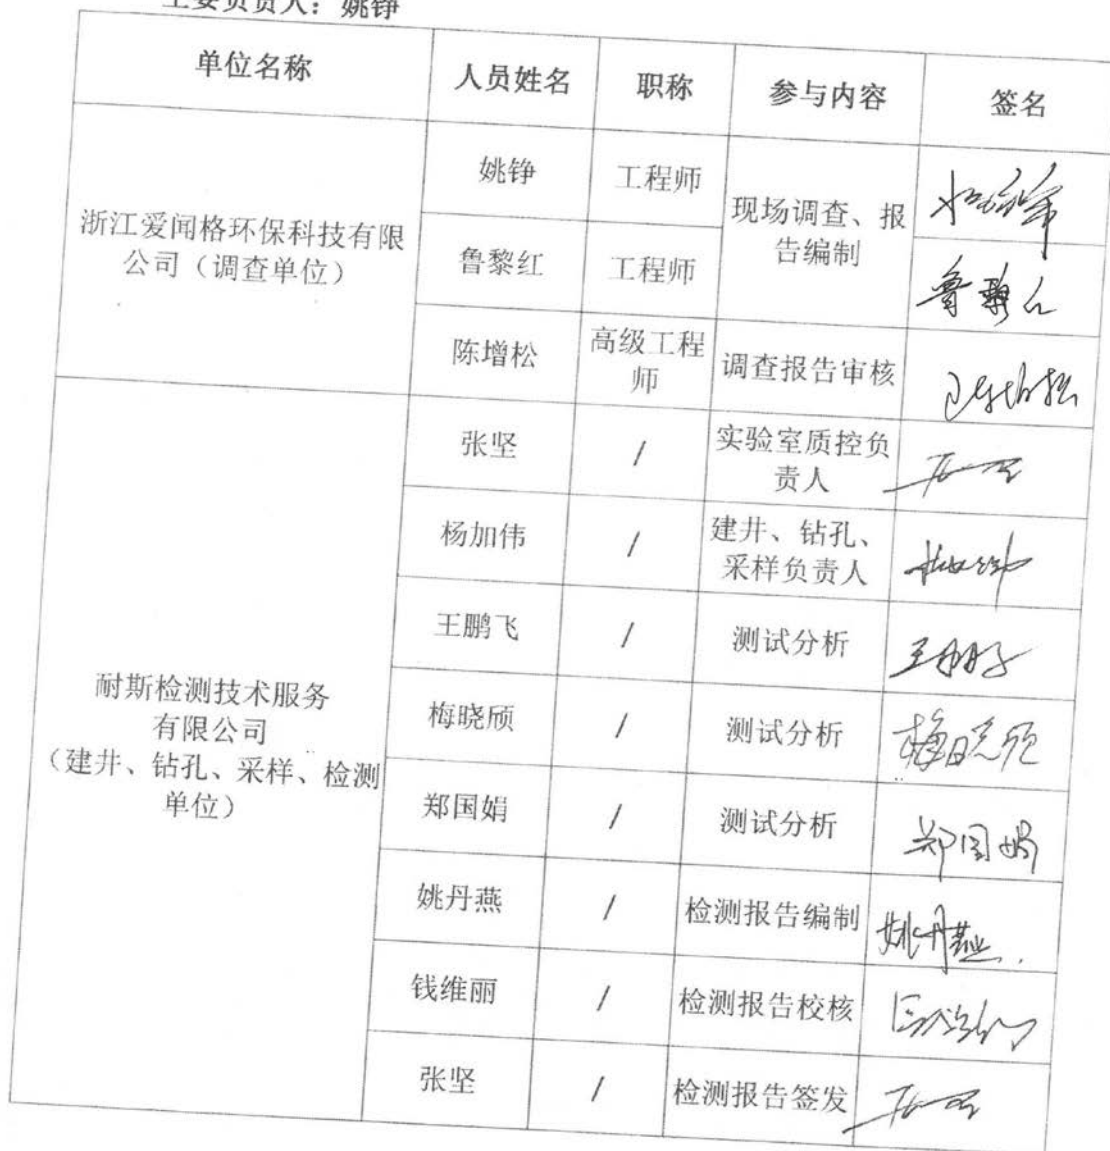 主要负责人：姚铮
单位名称 人员姓名 职称 参与内容 签名
浙江爱闻格环保科技有限
公司（调查单位）
姚铮 工程师
现场调查、报
告编制
鲁黎红 工程师
陈增松 高级工程
师
调查报告审核
耐斯检测技术服务
有限公司
（建井、钻孔、采样、检测
单位）
张坚 / 实验室质控负
责人
杨加伟 / 建井、钻孔、
采样负责人
王鹏飞 / 测试分析
梅晓颀 / 测试分析 梅晓颀
郑国娟 / 测试分析 郑国娟
姚丹燕 / 检测报告编制 姚丹燕
钱维丽 / 检测报告校核
张坚 / 检测报告签发